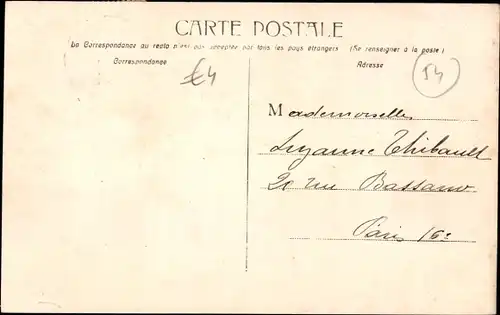 CARTE POSTALE
La Correspondance au recto n'est pas acceptée par tous les pays étrangers (Se renseigner à la poste)
Correspondance
Adresse
€4
54
Mademoiselle
Suzanne Thibault
20 rue Bassano
Paris 16e